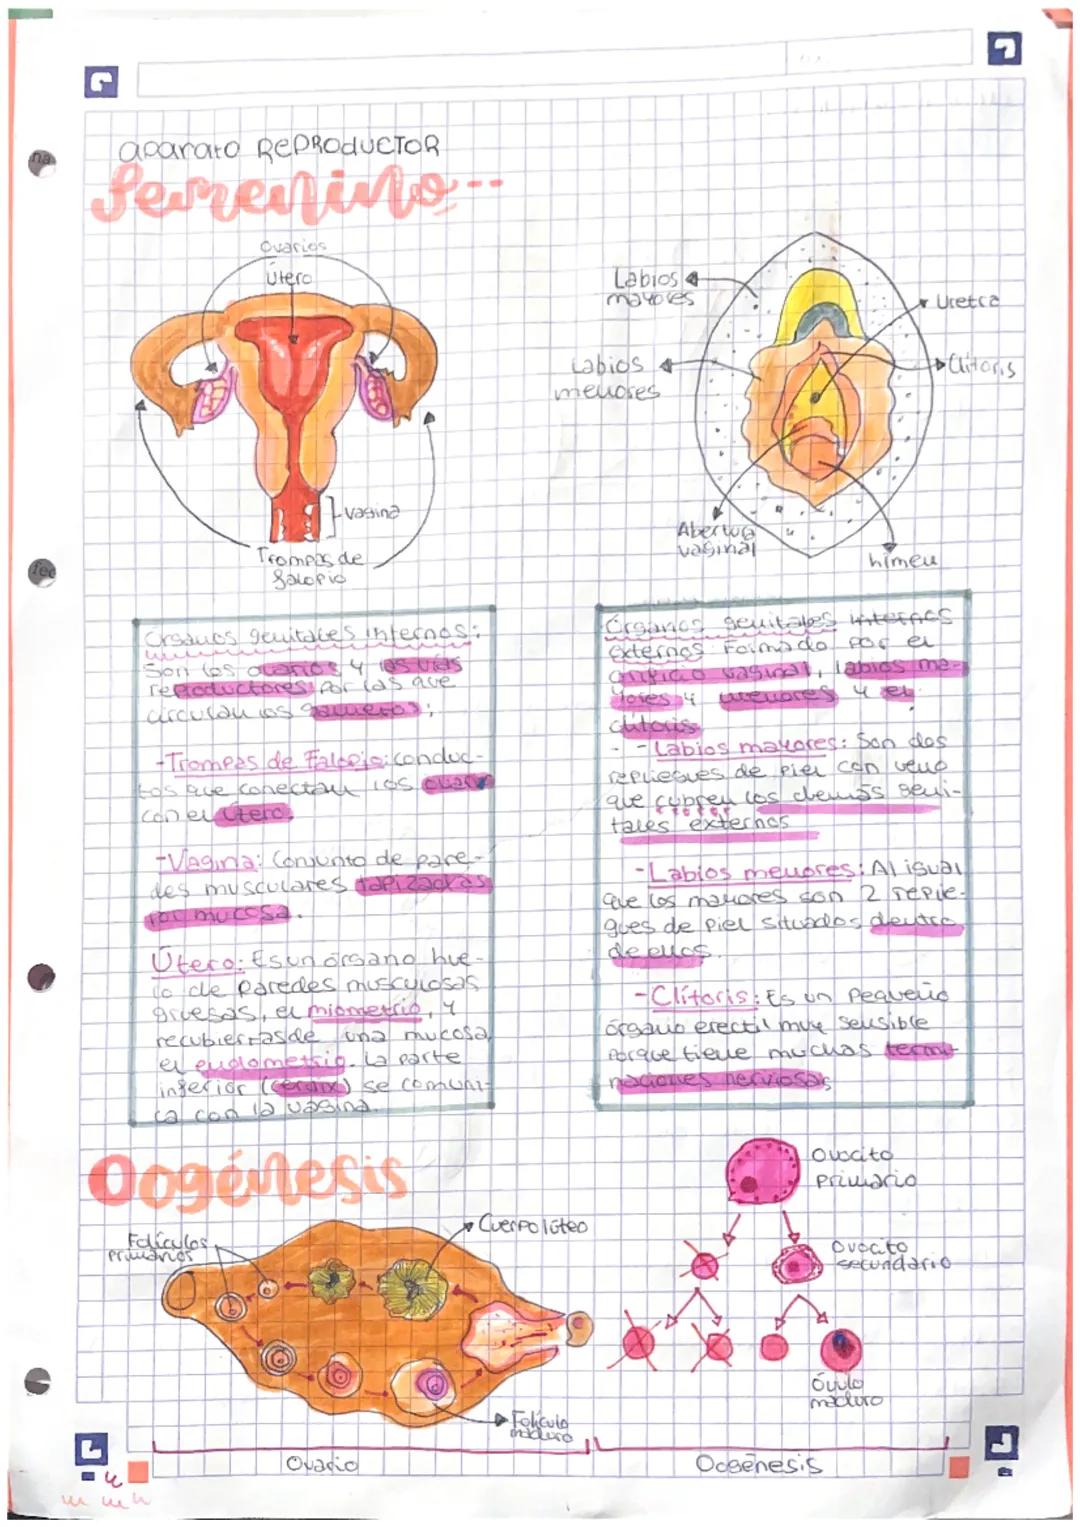 aparato REPRODUCTOR
femenino--
Ovarios
Útero
vagina
Trompas de
falopio
Labios
mayores
Labios
menores
Uretra
Clítoris
Abertura
vaginal
himen
Órganos genitales internos:
Son los ovarios y las vías
reproductores por las que
circulan los gametos;
-Trompas de Falopio: conduc-
tos que conectan los ovar
con el útero.
-Vagina: Conjunto de pare-
des musculares tapizadas
por mucosa.
Útero: Es un órgano hue-
co de paredes musculosas
gruesas, el miometrio, y
recubiertas de una mucosa,
el endometrio. La parte
inferior (cervix) se comuni-
ca con la vagina.
Órganos genitales internos
externos Formado por el
orificio vaginal, labios ma-
yores y menores y el
clítoris
- - Labios mayores: Son dos
repliegues de piel con vello
que cubren los demás geni-
tales externos
- Labios menores: Al igual
que los mayores son 2 replie-
gues de piel situados dentro
de ellos.
- Clítoris: Es un pequeño
órgano erectil muy sensible
porque tiene muchas termi-
naciones nerviosas
Oogénesis
Folículos
primarios
Cuerpo lúteo
Folículo
maduro
Ovario
Ovocito
primario
Ovocito
secundario
Óvulo
maduro
Oogénesis